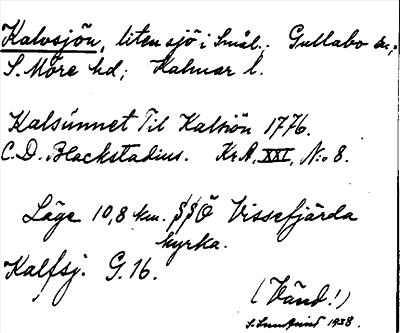 Kalvsjön, liten sjö i Smål. Gullabo sn;
S. Möre hd; Kalmar l.
Kalsúnnet Til Kalsiön 1776.
C. D. Blackstadius. Kr.A. XXI, N:o 8.
Läge 10,8 km. SSÖ Vissefjärda
kyrka.
Kalfsj. G. 16.
(Vänd!)
S. Lundkvist 1938.